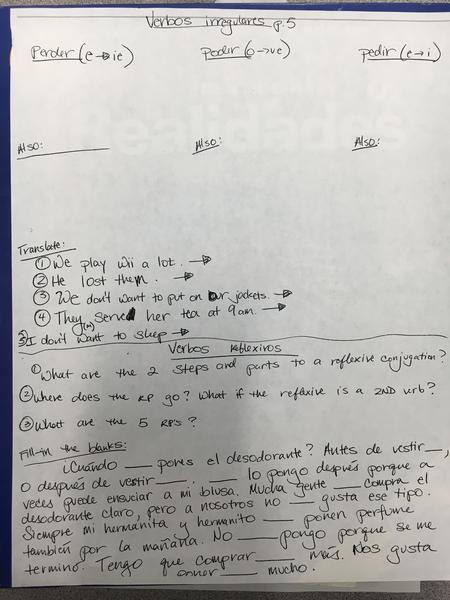 Verbos irregulares p.5
Perder (e→ie) poder (o→ue) pedir (e→i)
Also: Also: Also:
Translate:
① We play wii a lot. →
② He lost them. →
③ We don't want to put on our jackets. →
④ They served her tea at 9am. →
⑤ I don't want to sleep →
Verbos reflexivos
① What are the 2 steps and parts to a reflexive conjugation?
② Where does the RP go? What if the reflexive is a 2ND verb?
③ What are the 5 RP's?
Fill-in the blanks:
¿Cuándo ___ pones el desodorante? Antes de vestir__,
o después de vestir___. ___ lo pongo después porque a
veces puede ensuciar a mi blusa. Mucha gente ___ compra el
desodorante claro, pero a nosotros no ___ gusta ese tipo.
Siempre mi hermanita y hermanito ___ ponen perfume
también por la mañana. No ___ pongo porque se me
termino. Tengo que comprar ___ más. Nos gusta
___ mucho.